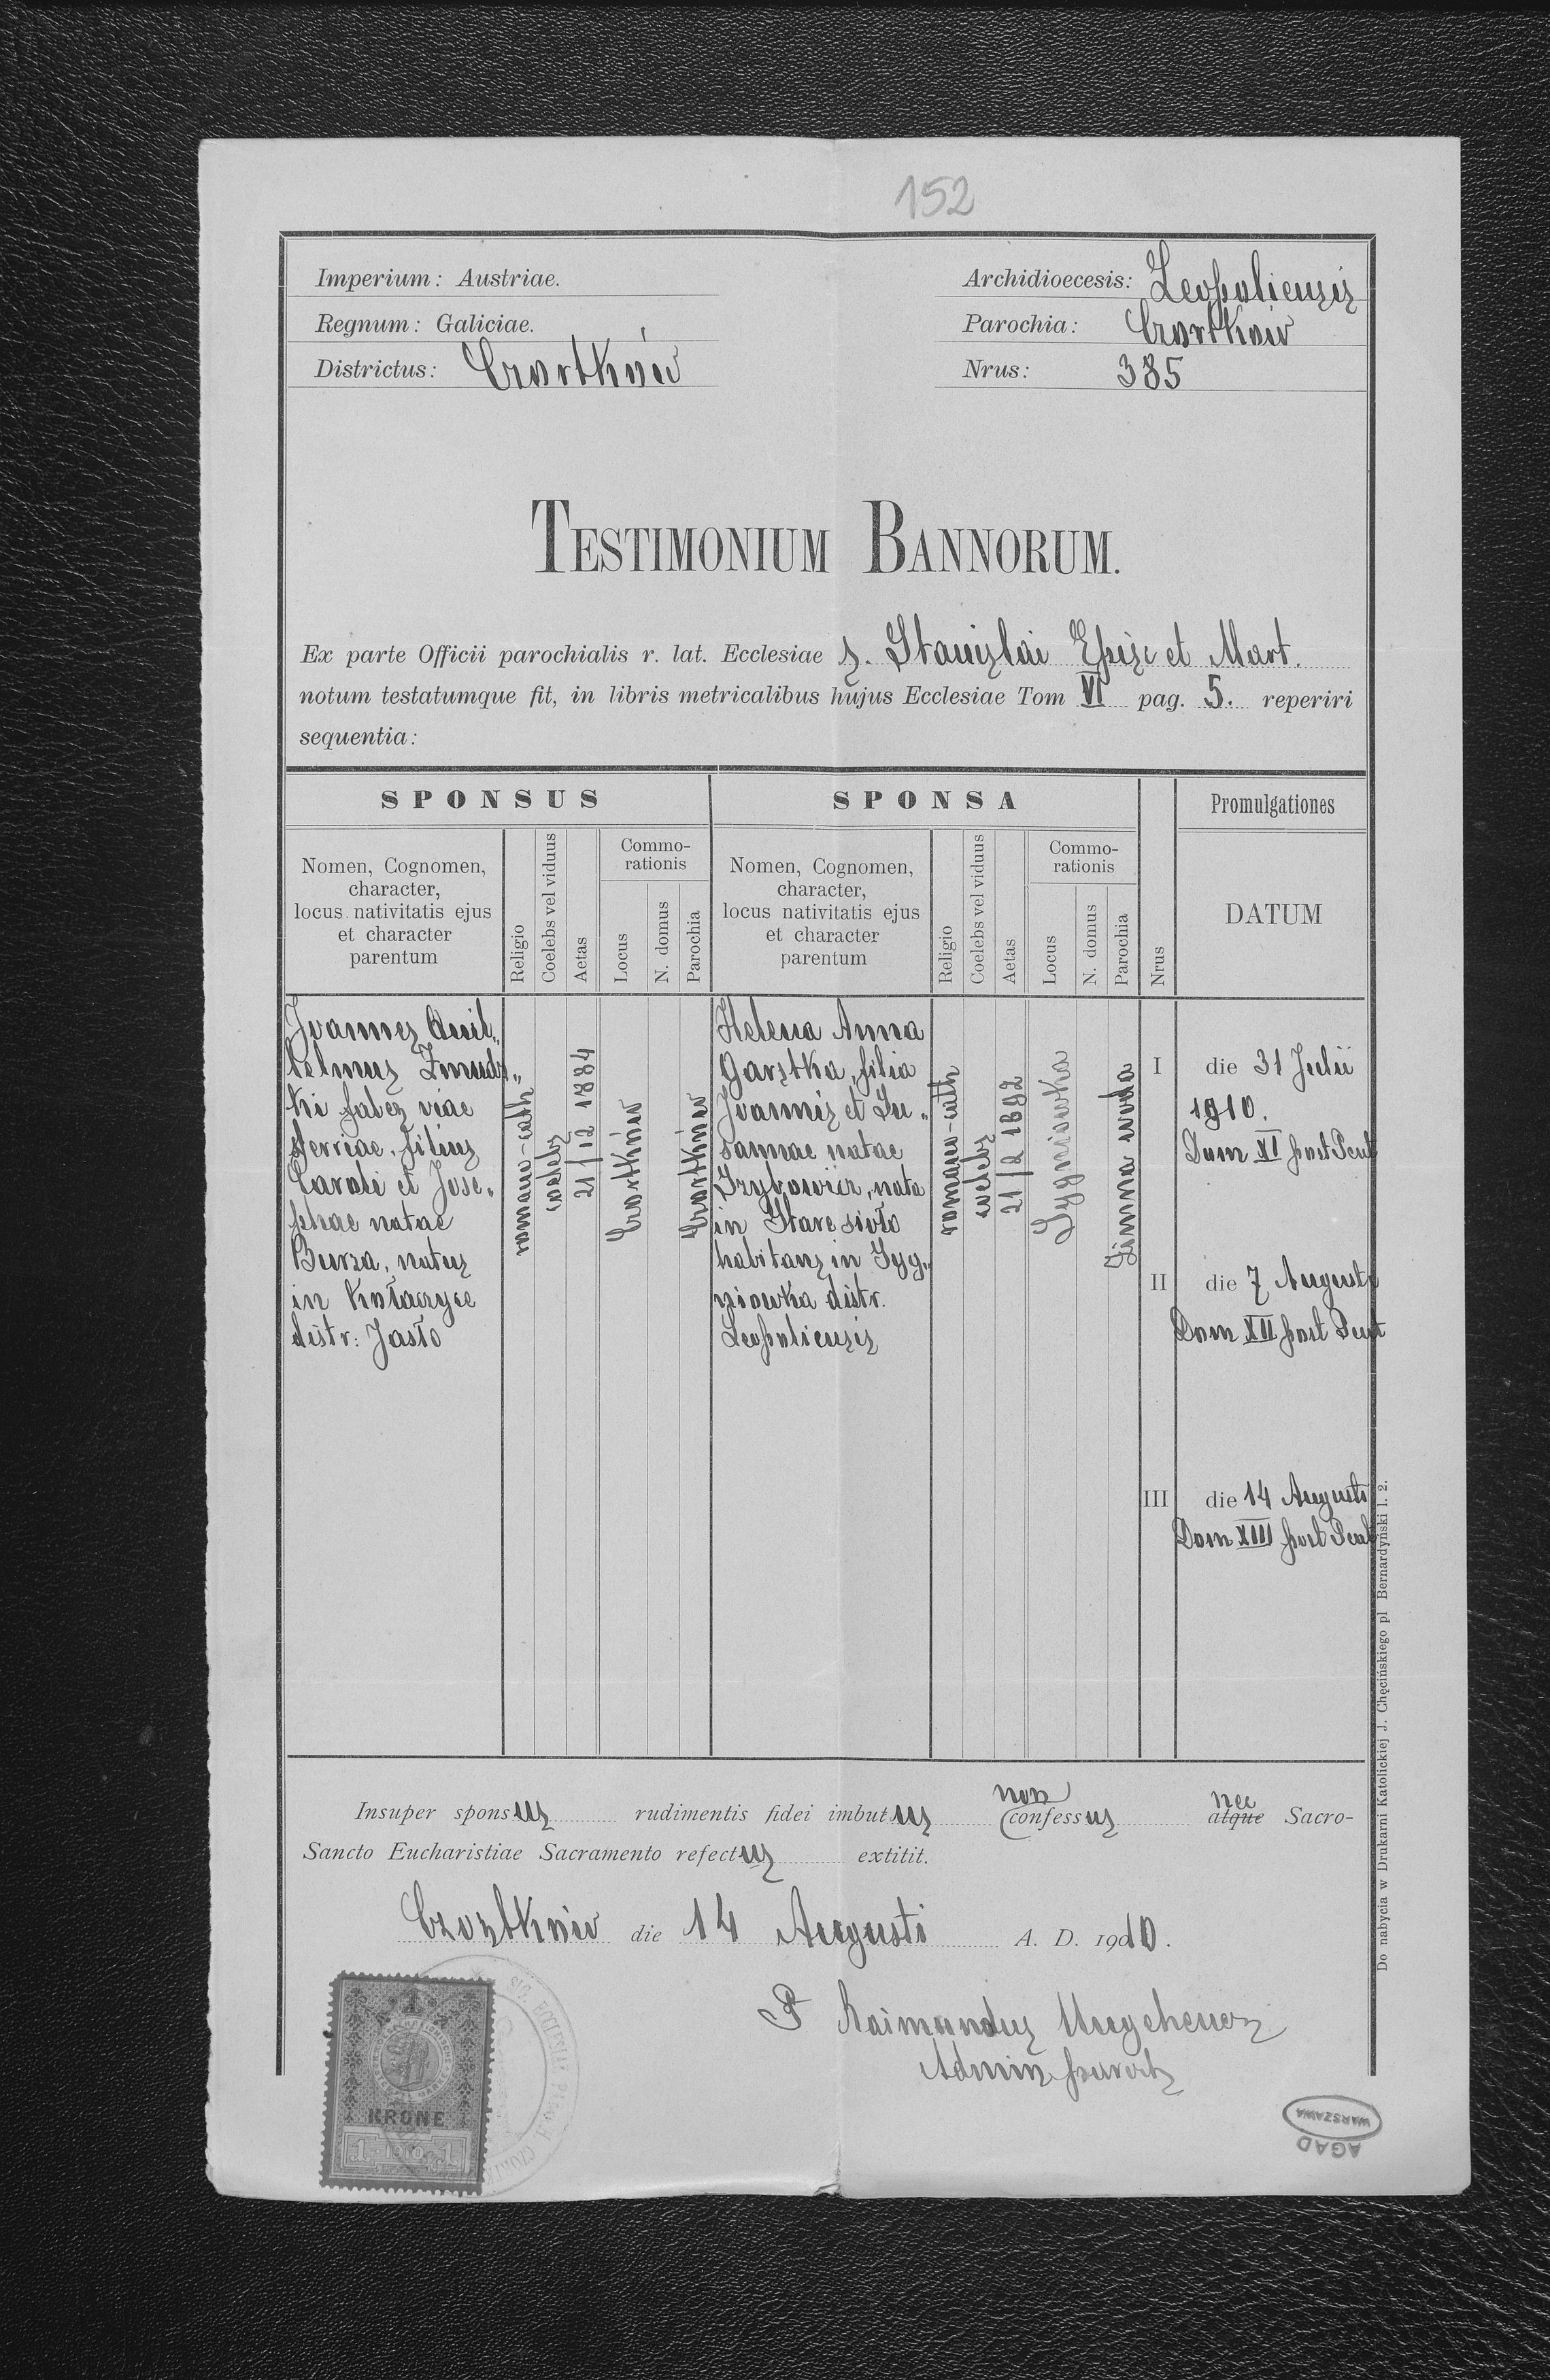 152
Imperium: Austriae.
Archidioecesis: Leopoliensis
Regnum: Galiciae.
Parochia: Czortków
Districtus: Czortków
Nrus: 385
TESTIMONIUM BANNORUM.
Ex parte Officii parochialis r. lat. Ecclesiae s. Stanislai Episc et Mart.
notum testatumque fit, in libris metricalibus hujus Ecclesiae Tom VI pag. 5. reperiri
sequentia:
SPONSUS
Nomen, Cognomen,
character,
locus nativitatis ejus
et character
parentum
Religio
Coelebs vel viduus
Aetas
Commo-
rationis
Locus
N. domus
Parochia
SPONSA
Nomen, Cognomen,
character,
locus nativitatis ejus
et character
parentum
Religio
Coelebs vel viduus
Aetas
Commo-
rationis
Locus
N. domus
Parochia
Nrus
Promulgationes
DATUM
Joannes Quil„
helmus Żmudz„
ki faber viae
ferriae, filius
Caroli et Jose„
phae natae
Burza, natus
in Kołaczyce
distr: Jasło
romano-cath
coelebs
21/12 1884
Czortków
Czortków
Helena Anna
Garstka, filia
Joannis et Su„
sannae natae
Grzybowicz, nata
in Stare sioło
habitans in Syg„
niowka distr.
Leopoliensis
romano-cath
coelebs
21/2 1892
Sygniowka
Zimna woda
I die 31 Julii
1910.
Dom XI post Pent
II die 7 Augusti
Dom XII post Pent
III die 14 Augusti
Dom XIII post Pent
Insuper sponsus rudimentis fidei imbutus non confessus nec atque Sacro-
Sancto Eucharistiae Sacramento refectus extitit.
Czortków die 14 Augusti A. D. 1910.
P Raimundus
Admin
1
KRONE
1 1910 1
SIG. ECCLESIAE
AGAD
WARSZAWA
Do nabycia w Drukarni Katolickiej J. Chęcińskiego pl Bernardyński l. 2.